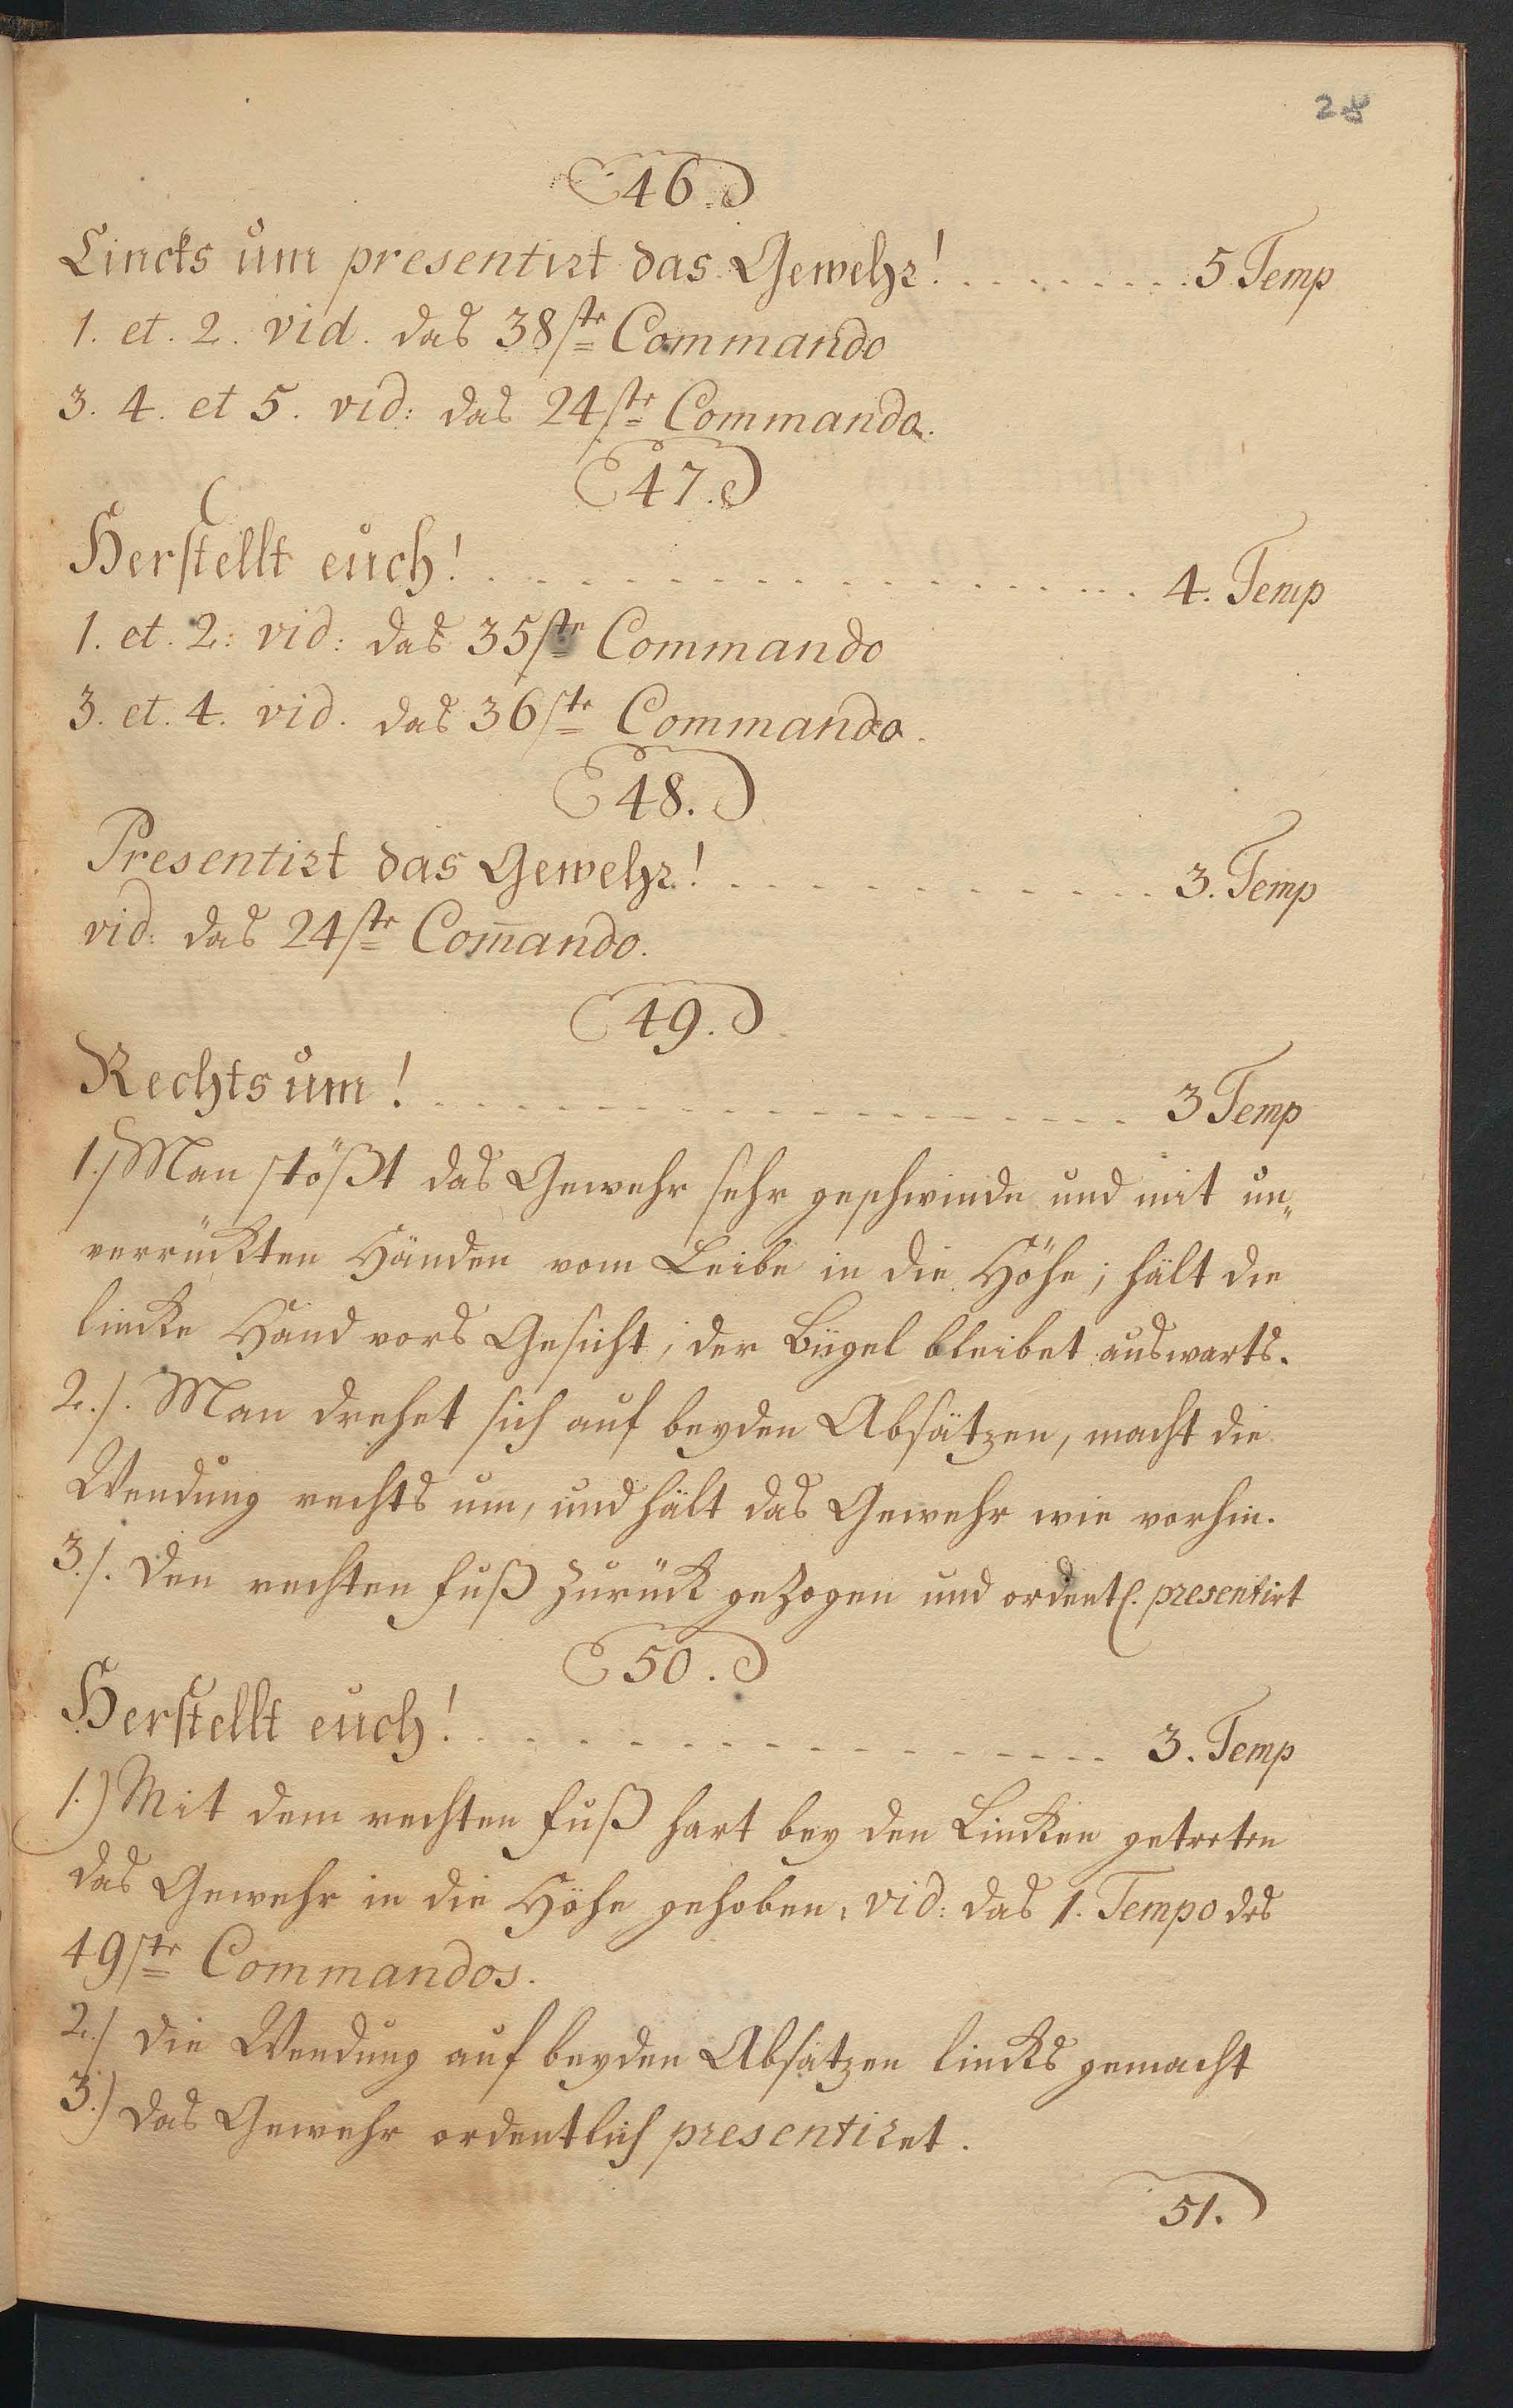 28
46.
Lincks um presentirt das Gewehr! . . . . . . . . . 5 Temp
1. et. 2. vid. das 38ste Commando
3. 4. et 5. vid: das 24ste Commando.
47.
Herstellt euch! . . . . . . . . . . . . . . . . 4. Temp
1. et. 2: vid: das 35ste Commando
3. et. 4. vid. das 36ste Commando.
48.
Presentirt das Gewehr! . . . . . . . . . . . 3. Temp
vid: das 24ste Com̄ando.
49.
Rechts um! . . . . . . . . . . . . . . . . 3 Temp
1./ Man stößt das Gewehr sehr geschwinde und mit un„
verrückten Händen vom Leibe in die Höhe; hält die
lincke Hand vors Gesicht, der Bügel bleibet auswarts.
2./. Man drehet sich auf beyden Absätzen, macht die
Wendung rechts um, und hält das Gewehr wie vorhin.
3./. den rechten Fuß zurück gezogen und ordentl. presentirt
50.
Herstellt euch! . . . . . . . . . . . . . . . . 3. Temp
1.) Mit dem rechten Fuß hart bey den Lincken getreten
das Gewehr in die Höhe gehoben, vid: das 1. Tempo des
49ste Commandos.
2./ die Wendung auf beyden Absatzen lincks gemacht
3.) das Gewehr ordentlich presentiret.
51.